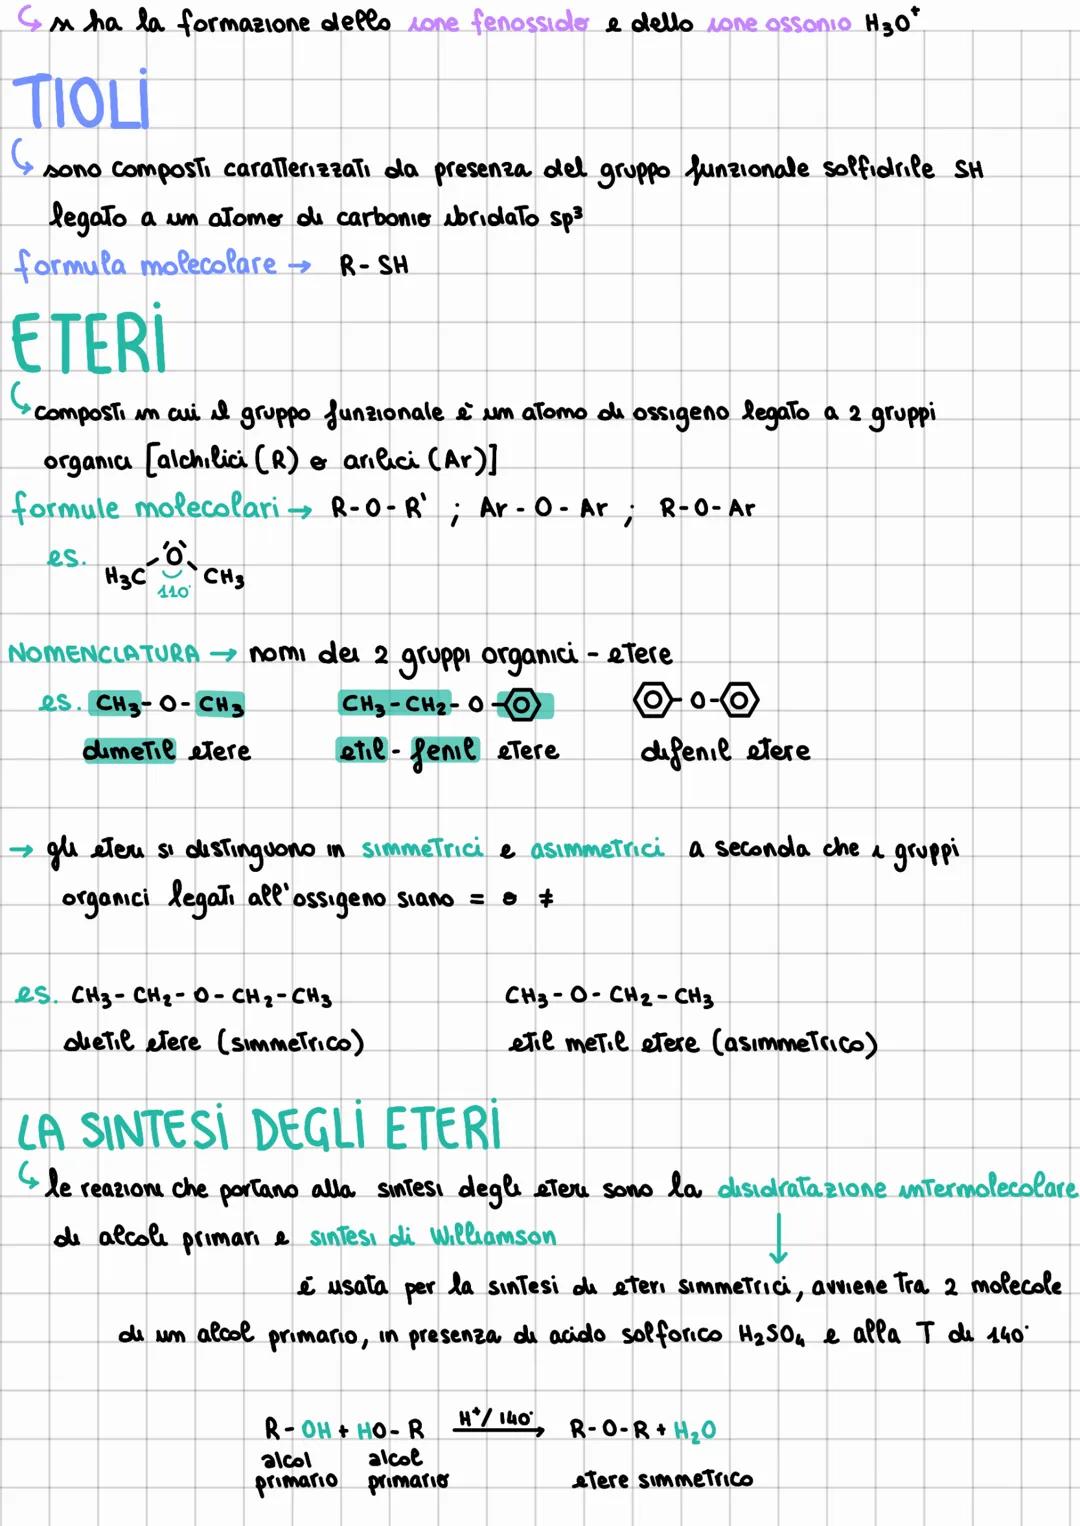 si ha la formazione dello ione fenossido e dello ione ossonio H₃O⁺
TIOLI
sono composti caratterizzati da presenza del gruppo funzionale solfidrile SH
legato a un atomo di carbonio ibridato sp³
formula molecolare → R - SH
ETERI
composti in cui il gruppo funzionale è un atomo di ossigeno legato a 2 gruppi
organici [alchilici (R) o arilici (Ar)]
formule molecolari → R - O - R' ; Ar - O - Ar ; R - O - Ar
es.
H₃C O CH₃
110°
NOMENCLATURA → nomi dei 2 gruppi organici - etere
es. CH₃ - O - CH₃ CH₃ - CH₂ - O - - O -
dimetil etere etil - fenil etere difenil etere
→ gli eteri si distinguono in simmetrici e asimmetrici a seconda che i gruppi
organici legati all'ossigeno siano = o ≠
es. CH₃ - CH₂ - O - CH₂ - CH₃ CH₃ - O - CH₂ - CH₃
dietil etere (simmetrico) etil metil etere (asimmetrico)
LA SINTESI DEGLI ETERI
le reazioni che portano alla sintesi degli eteri sono la disidratazione intermolecolare
di alcoli primari e sintesi di Williamson
é usata per la sintesi di eteri simmetrici, avviene tra 2 molecole
di un alcol primario, in presenza di acido solforico H₂SO₄ e alla T di 140°
R - OH + HO - R H⁺/ 140° → R - O - R + H₂O
alcol primario alcol primario etere simmetrico